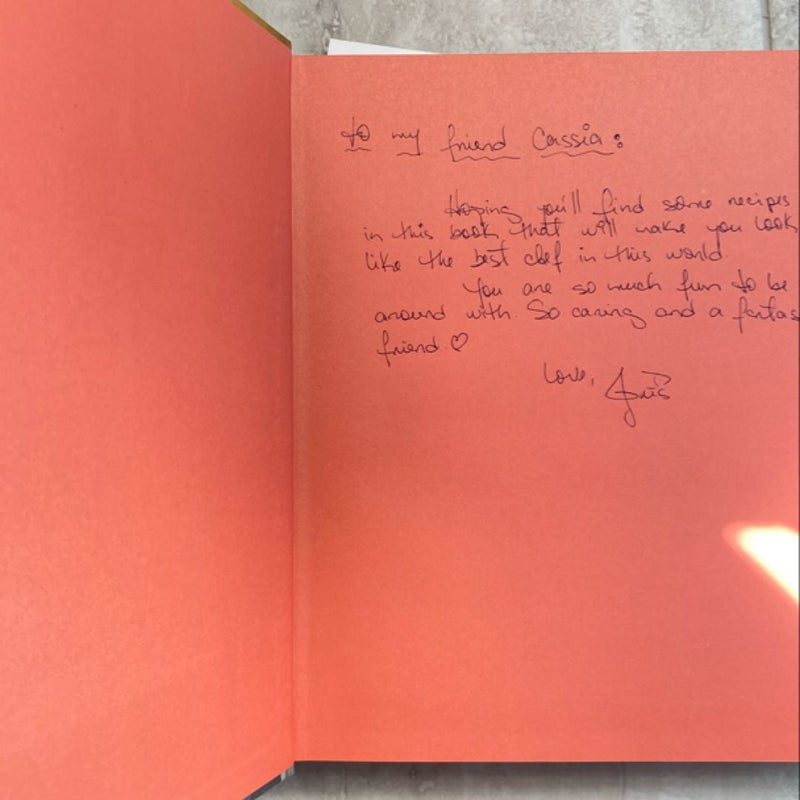 to my friend Cassia:
Hoping you'll find some recipes
in this book that will make you look
like the best chef in this world.
You are so much fun to be
around with. So caring and a fantas
friend ♡
Love,